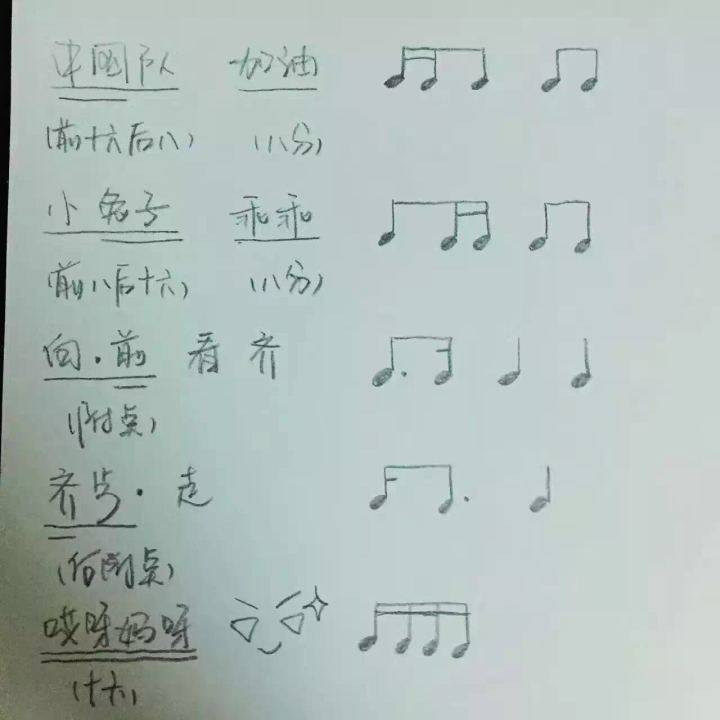 中国队 加油
(前十六后八) (八分)
小兔子 乖乖
(前八后十六) (八分)
向.前 看 齐
(附点)
齐步. 走
(后附点)
哎呀妈呀
(十六)